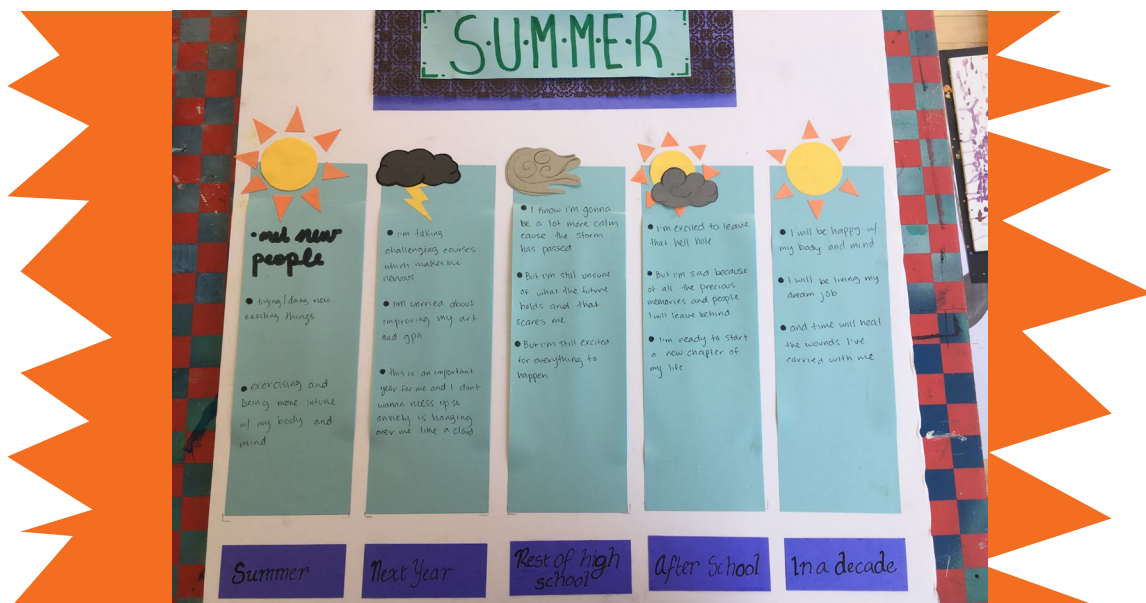 S·U·M·M·E·R
• met new
people
• trying/doing new
exciting things
• exercising and
being more intune
w/ my body and
mind
Summer
• I'm taking
challenging courses
which makes me
nervous
• I'm worried about
improving my art
and gpa
• this is an important
year for me and I dont
wanna mess up so
anxiety is hanging
over me like a cloud
Next Year
• I know i'm gonna
be a lot more calm
cause the storm
has passed
• But i'm still unsure
of what the future
holds and that
scares me
• But i'm still excited
for everything to
happen
Rest of high
school
• I'm excited to leave
that hell hole
• But i'm sad because
of all the precious
memories and people
I will leave behind
• I'm ready to start
a new chapter of
my life
After School
• I will be happy w/
my body and mind
• I will be living my
dream job
• and time will heal
the wounds I've
carried with me
In a decade